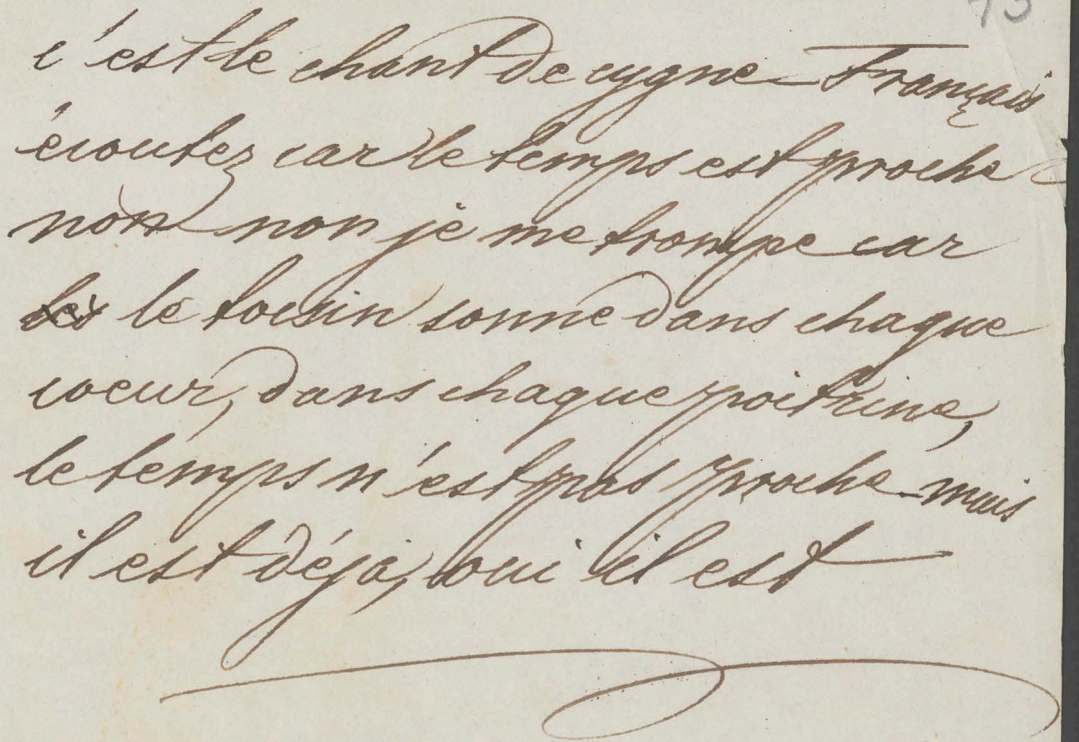 c'est le chant de cygne Français
écoutez car le temps est proche
non non je me trompe car
le tocsin sonne dans chaque
coeur, dans chaque poitrine,
le temps n'est pas proche mais
il est déjà, oui il est